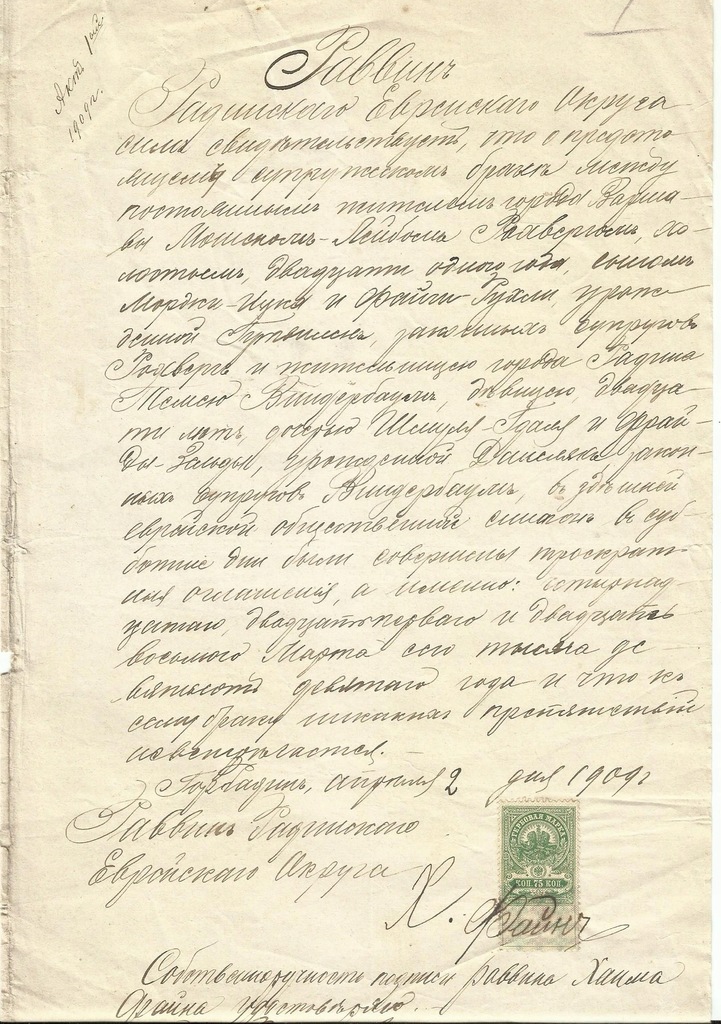 Актъ 1ый
1909 г.
Раввинъ
Радинскаго Еврейскаго Округа
симъ свидѣтельствуетъ, что о предсто-
ящемъ супружескомъ бракѣ между
постояннымъ жителемъ города Варша-
вы Мошекомъ-Лейбомъ Ротбергомъ, хо-
лостымъ, двадцати одного года, сыномъ
Мордки-Ицка и Файги-Рухли, урож-
денной, законныхъ супруговъ
Ротбергъ и жительницею города Радина
Темею Виндербаумъ, дѣвицею, двадца-
ти лѣтъ, дочерью Шмуля-Гдаля и Фрай-
ды-Зельды, урожденной законн-
ныхъ супруговъ Виндербаумъ, въ здѣшней
еврейской общественной синагогѣ въ суб-
ботніе дни были совершены троекрат-
ныя оглашенія, а именно: четырнад-
цатаго, двадцать перваго и двадцать
восьмого Марта сего тысяча де-
вятьсотъ девятаго года и что къ
сему браку никакихъ препятствій
не встрѣчается. —
Гор. Радинъ, апрѣля 2 дня 1909 г
Раввинъ Радинскаго
Еврейскаго Округа
Х. Файнъ
ГЕРБОВАЯ МАРКА
КОП. 75 КОП.
Собственноручность подписи раввина Хаима
Файна удостовѣряю. —